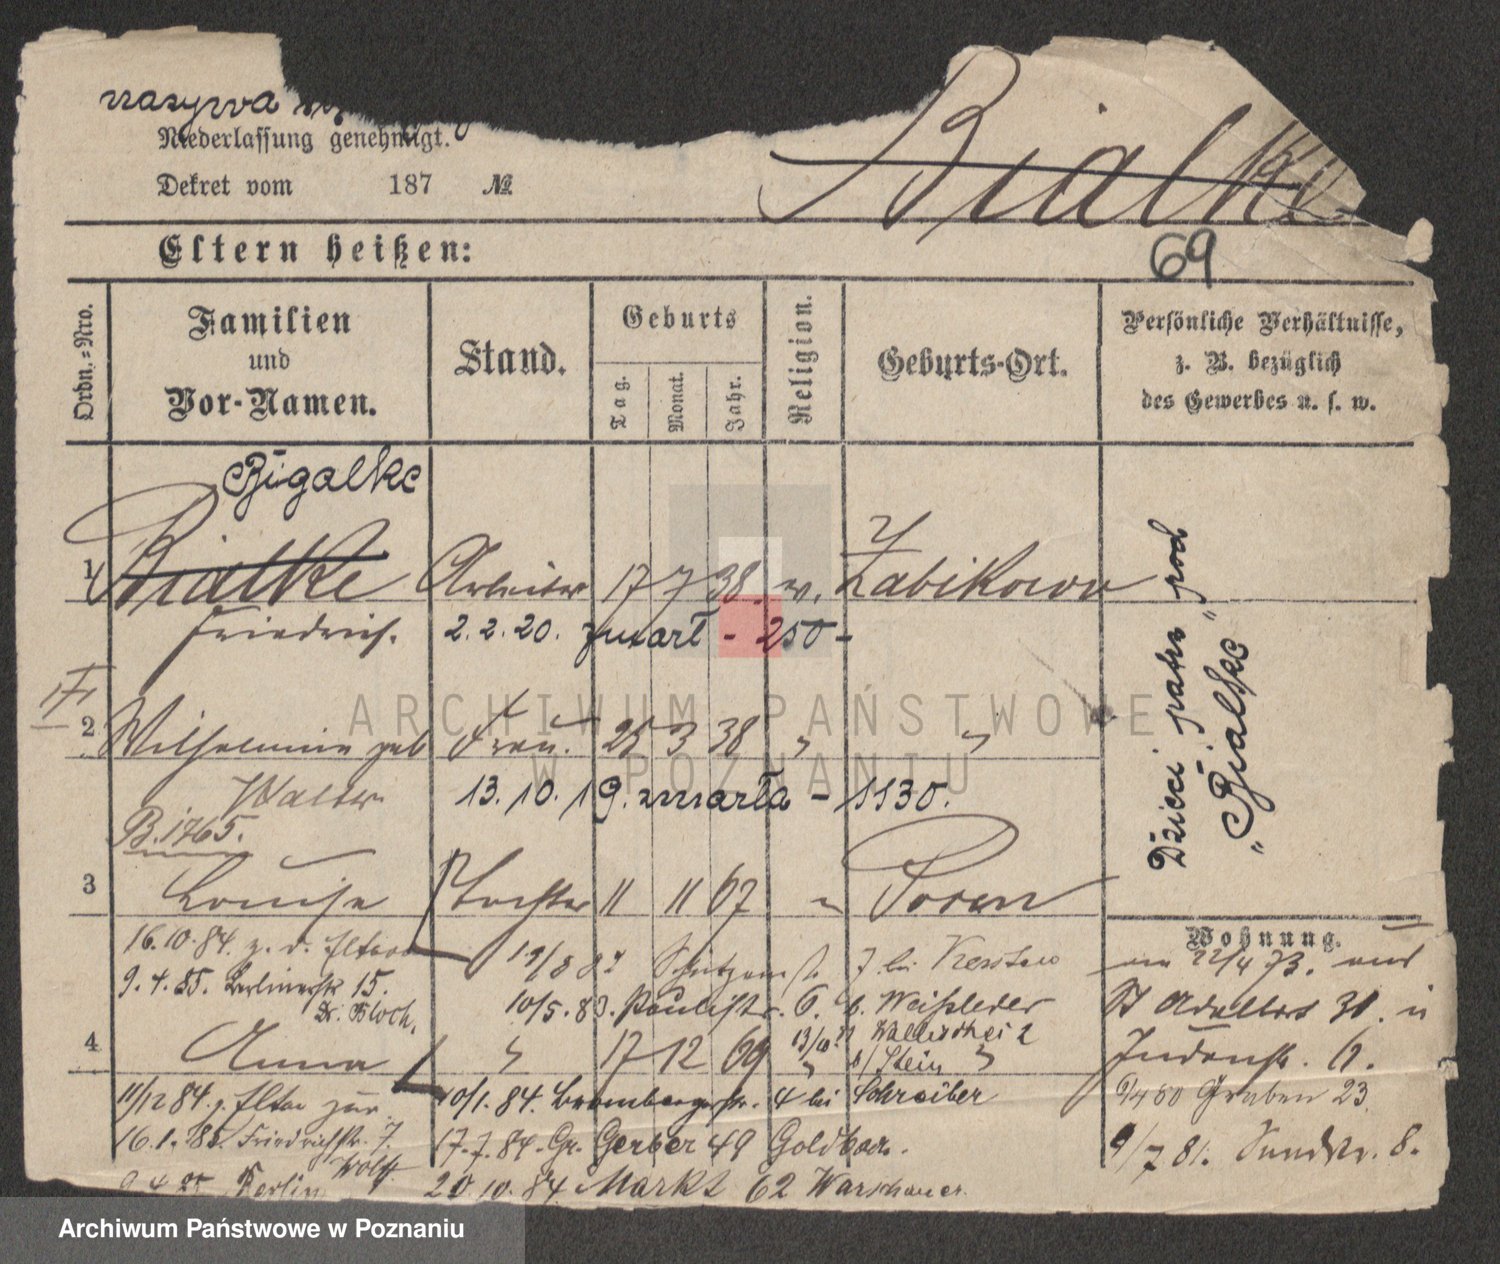 nazywa
Niederlassung genehmigt.
Dekret vom 187 №
Bialke
69
Eltern heißen:
Ordn.=Nro.
Familien
und
Vor-Namen.
Stand.
Geburts
Tag.
Monat.
Jahr.
Religion.
Geburts-Ort.
Persönliche Verhältnisse,
z. B. bezüglich
des Gewerbes u. s. w.
Bigalke
1 Bialke Arbeiter 17 7 38. ev. Zabikowo
Friedrich. 2.2.20. zmarł - 250 -
2 Wilhelmine geb Frau. 25 3 38 " "
Walter 13.10.19. zmarła - 1130.
B.1765.
3 Louise Tochter 11 11 67 " Posen
Dzieci patrz pod
"Bialke"
Wohnung.
16.10.84. z. d. Eltern
19/8 82 Schützenstr. 7 bei Kersten
9.4.85. Berlinerstr 15.
Dr. Bloch.
10/5.83. Paulistr. 6. b. Weissleder
4 Anna " 17 12 69 "
Wallischei 2
b/ Stein
11/12 84. z. Eltern zur.
10/1.84. Brombergerstr. 4 bei Schreiber
16.1.85. Friedrichstr. 7.
Wolff
17.7.84. Gr. Gerber 49
9.4.85 Berlin
20.10.84 Markt 62 Warschauer.
22/4 73. und
St Adalbert 31. in
Judenstr. 6.
Graben 23
9/7 81. Sandstr. 8.
ARCHIWUM PAŃSTWOWE
W POZNANIU
Archiwum Państwowe w Poznaniu